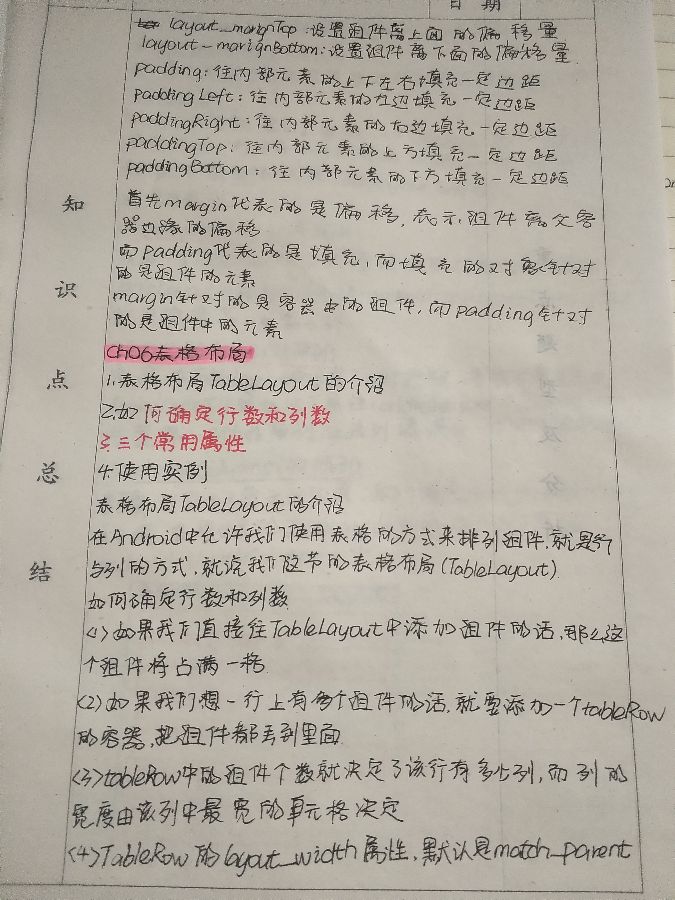 日期
layout_marignTop:设置组件离上面的偏移量
layout-marignBottom:设置组件离下面的偏移量
padding:往内部元素的上下左右填充一定边距
paddingLeft:往内部元素的左边填充一定边距
paddingRight:往内部元素的右边填充一定边距
paddingTop:往内部元素的上方填充一定边距
paddingBottom:往内部元素的下方填充一定边距
首先margin代表的是偏移,表示组件离父容
器边缘的偏移
而padding代表的是填充,而填充的对象针对
的是组件的元素
margin针对的是容器中的组件,而padding针对
的是组件中的元素
Ch06表格布局
1.表格布局TableLayout的介绍
2.如何确定行数和列数
3.三个常用属性
4.使用实例
表格布局TableLayout的介绍
在Android中允许我们使用表格的方式来排列组件,就是行
与列的方式,就说我们这节的表格布局(TableLayout)
如何确定行数和列数
<1>如果我们直接往TableLayout中添加组件的话,那么这
个组件将占满一格
<2>如果我们想一行上有多个组件的话,就要添加一个tableRow
的容器,把组件都丢到里面
<3>tableRow中的组件个数就决定了该行有多少列,而列的
宽度由该列中最宽的单元格决定
<4>TableRow的layout_width属性,默认是match_parent
知
识
点
总
结